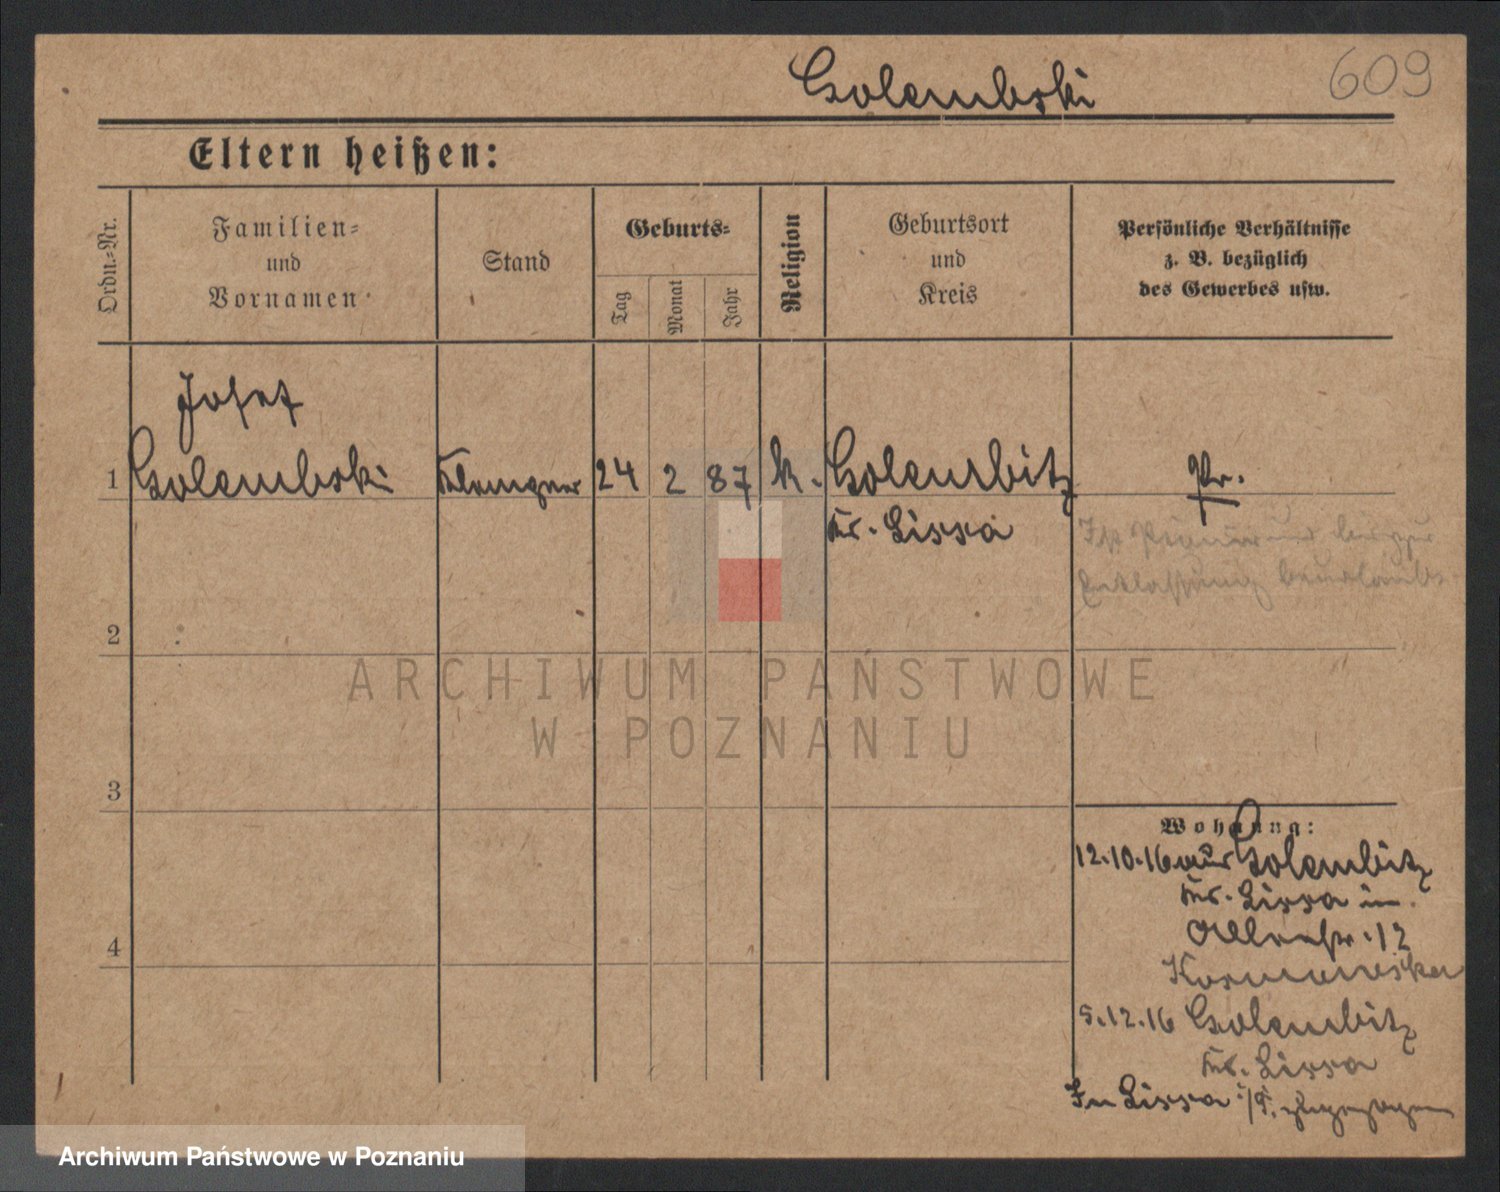 Golembski 609
Eltern heißen:
Ordn.-Nr.
Familien-
und
Vornamen
Stand
Geburts-
Tag
Monat
Jahr
Religion
Geburtsort
und
Kreis
Persönliche Verhältnisse
z. B. bezüglich
des Gewerbes usw.
Josef
1 Golembski Klempner 24 2 87 k. Golembitz Pr.
Kr. Lissa
Entlassung beurlaubt
2
ARCHIWUM PAŃSTWOWE
W POZNANIU
3
Wohnung:
12.10.16 aus Golembitz
Kr. Lissa in
4
5.12.16 Golembitz
Kr. Lissa
In Lissa i/P. zugezogen
Archiwum Państwowe w Poznaniu